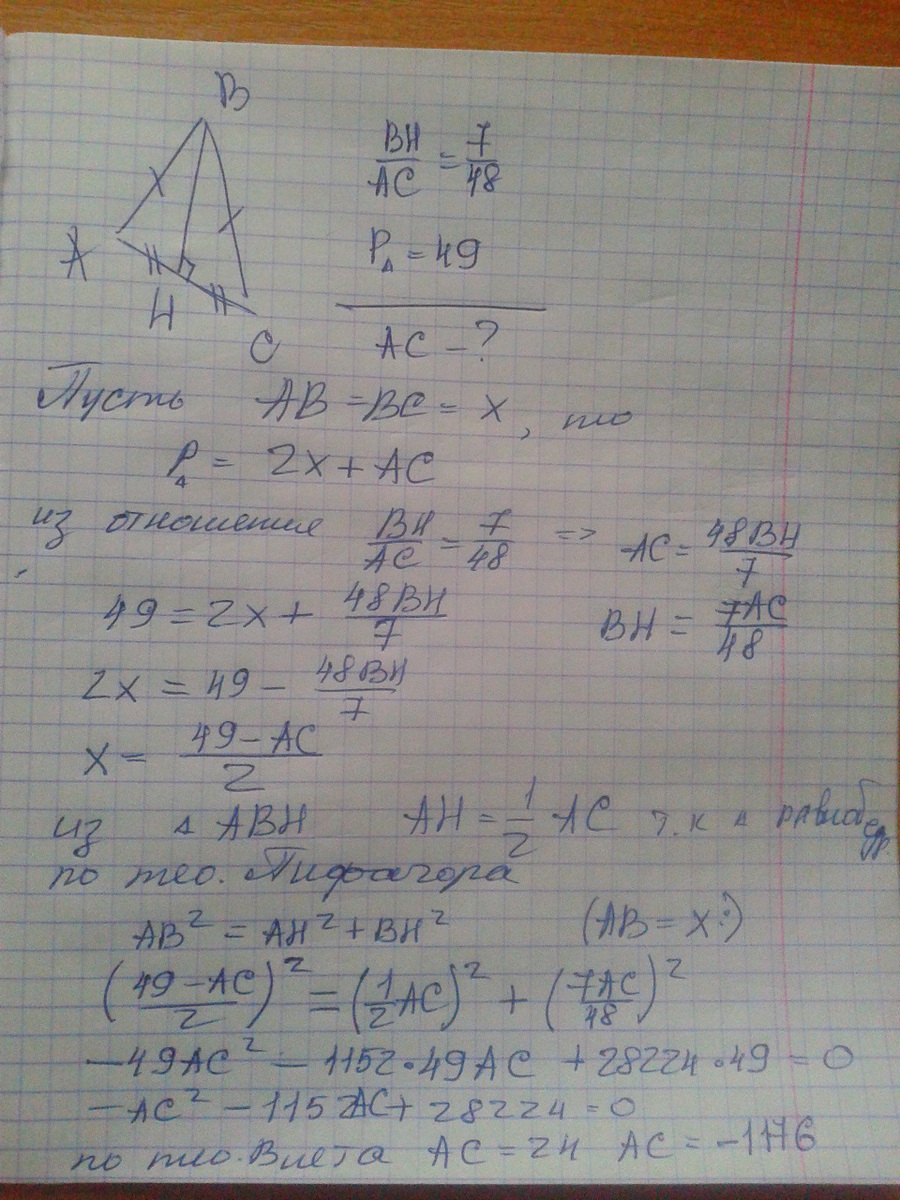 B
A
H
C
BH/AC = 7/48
P△ = 49
AC - ?
Пусть AB = BC = x, то
P△ = 2x + AC
из отношения BH/AC = 7/48 => AC = 48BH/7
49 = 2x + 48BH/7
BH = 7AC/48
2x = 49 - 48BH/7
x = (49 - AC)/2
из △ ABH AH = 1/2 AC т.к △ равнобедр.
по тео. Пифагора
AB² = AH² + BH² (AB = x :)
((49 - AC)/2)² = (1/2 AC)² + (7AC/48)²
-49AC² - 1152·49AC + 28224·49 = 0
-AC² - 1152AC + 28224 = 0
по тео. Виета AC = 24 AC = -1176